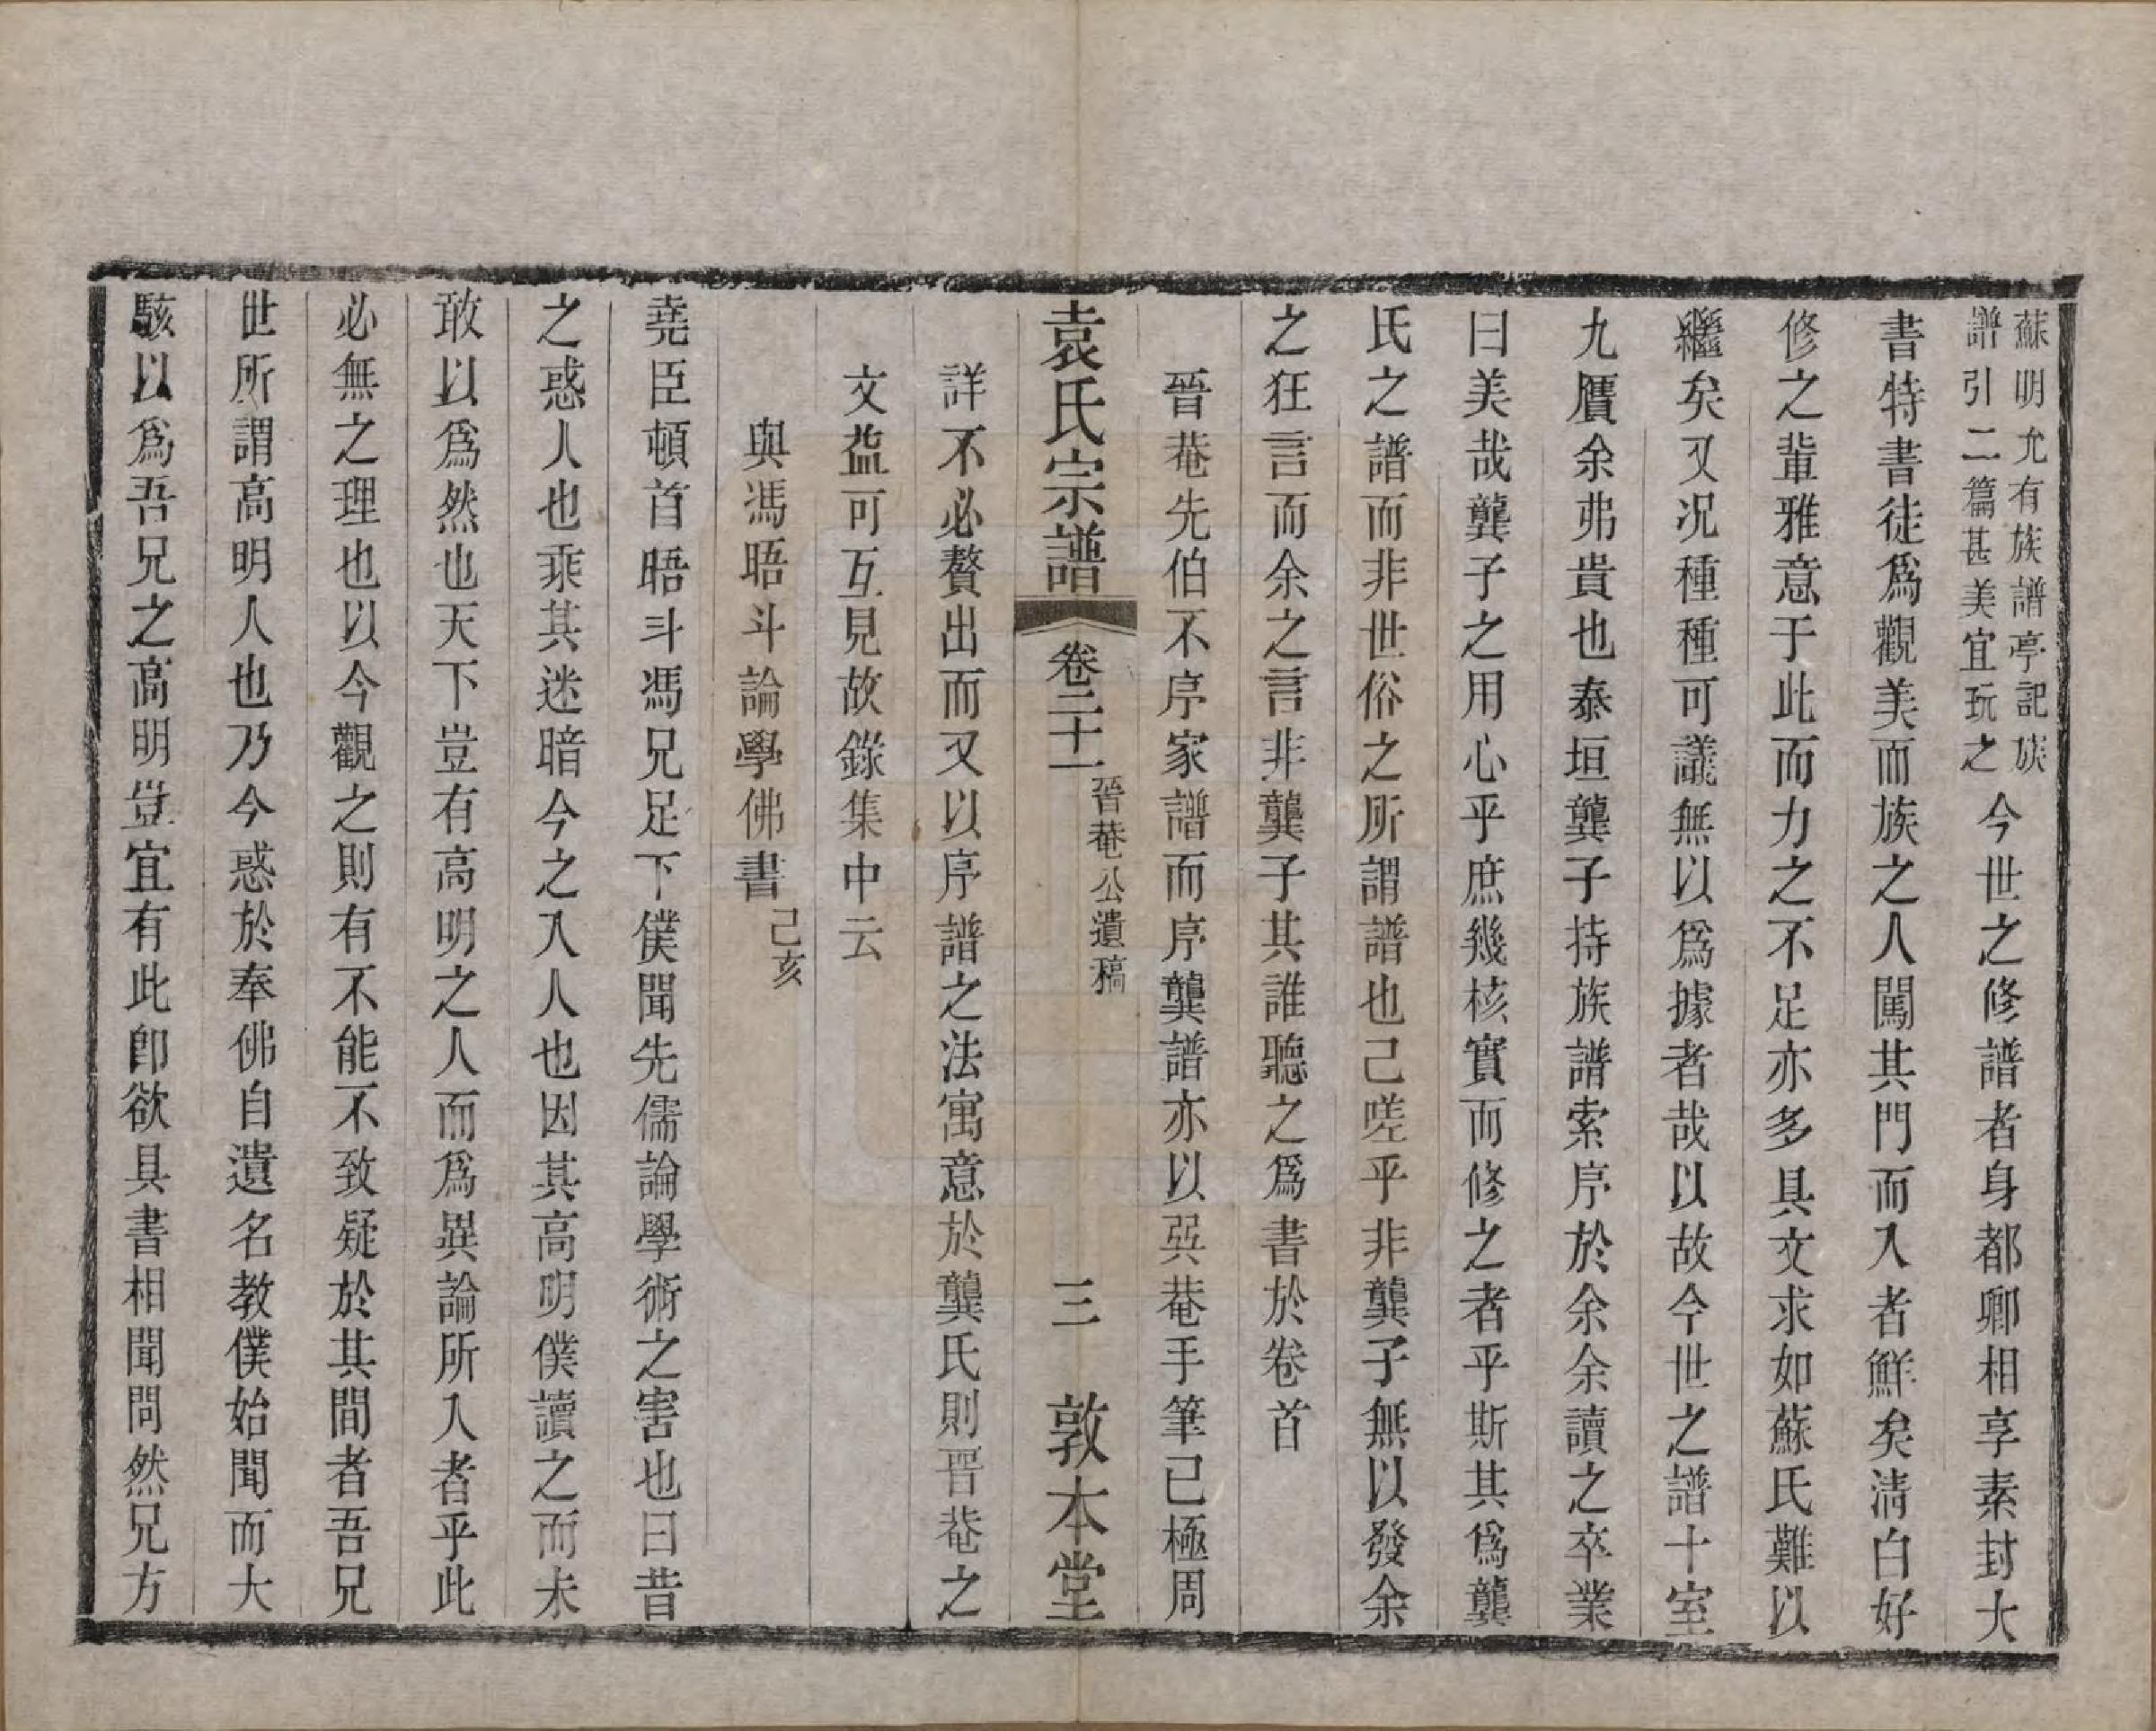 蘇明允有族譜亭記族
譜引二篇甚美宜玩之
今世之修譜者身都卿相享素封大
書特書徒爲觀美而族之人闖其門而入者鮮矣淸白好
修之輩雅意于此而力之不足亦多具文求如蘇氏難以
繼矣又况種種可議無以爲據者哉以故今世之譜十室
九贋余弗貴也泰垣龔子持族譜索序於余余讀之卒業
曰美哉龔子之用心乎庶幾核實而修之者乎斯其爲龔
氏之譜而非世俗之所謂譜也己嗟乎非龔子無以發余
之狂言而余之言非龔子其誰聽之爲書於卷首
晉菴先伯不序家譜而序龔譜亦以巽菴手筆己極周
袁氏宗譜
卷二十一
晉菴公遺稿
三
敦本堂
詳不必贅出而又以序譜之法寓意於龔氏則晉菴之
文益可互見故錄集中云
與馮晤斗論學佛書
己亥
堯臣頓首晤斗馮兄足下僕聞先儒論學術之害也曰昔
之惑人也乘其迷暗今之入人也因其高明僕讀之而未
敢以爲然也天下豈有高明之人而爲異論所入者乎此
必無之理也以今觀之則有不能不致疑於其間者吾兄
世所謂高明人也乃今惑於奉佛自遺名教僕始聞而大
駭以爲吾兄之高明豈宜有此卽欲具書相聞問然兄方